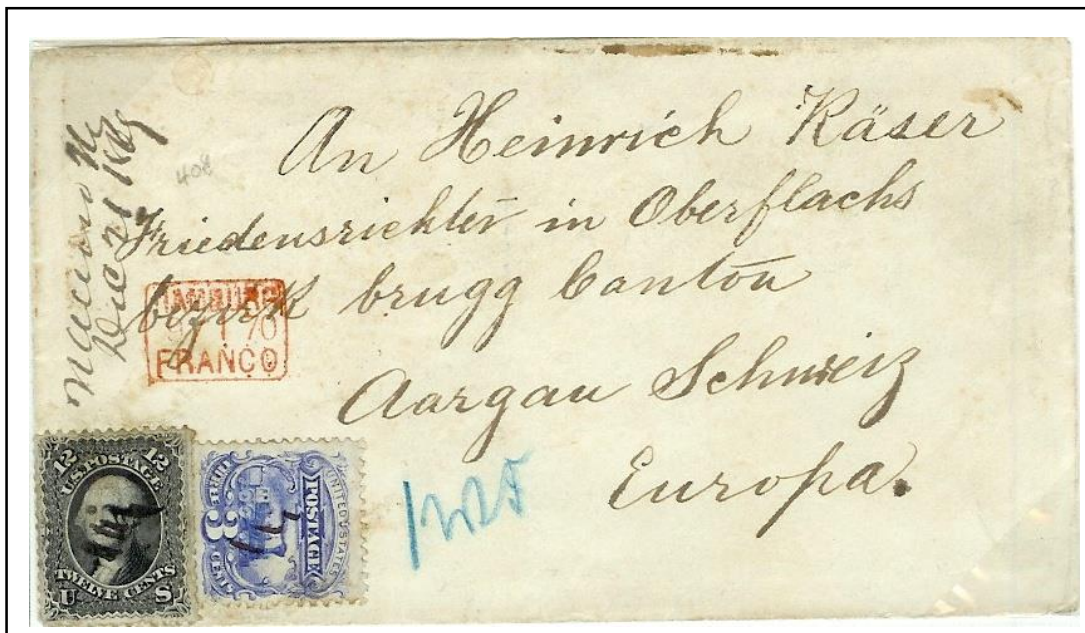 An Heinrich Käser
Friedensrichter in Oberflachs
bezirk brugg Canton
Aargau Schweiz
Europa.
408
HAMBURG
1 70
FRANCO
12
12
U.S. POSTAGE
TWELVE CENTS
U
S
UNITED STATES
POSTAGE
THREE
3
CENTS